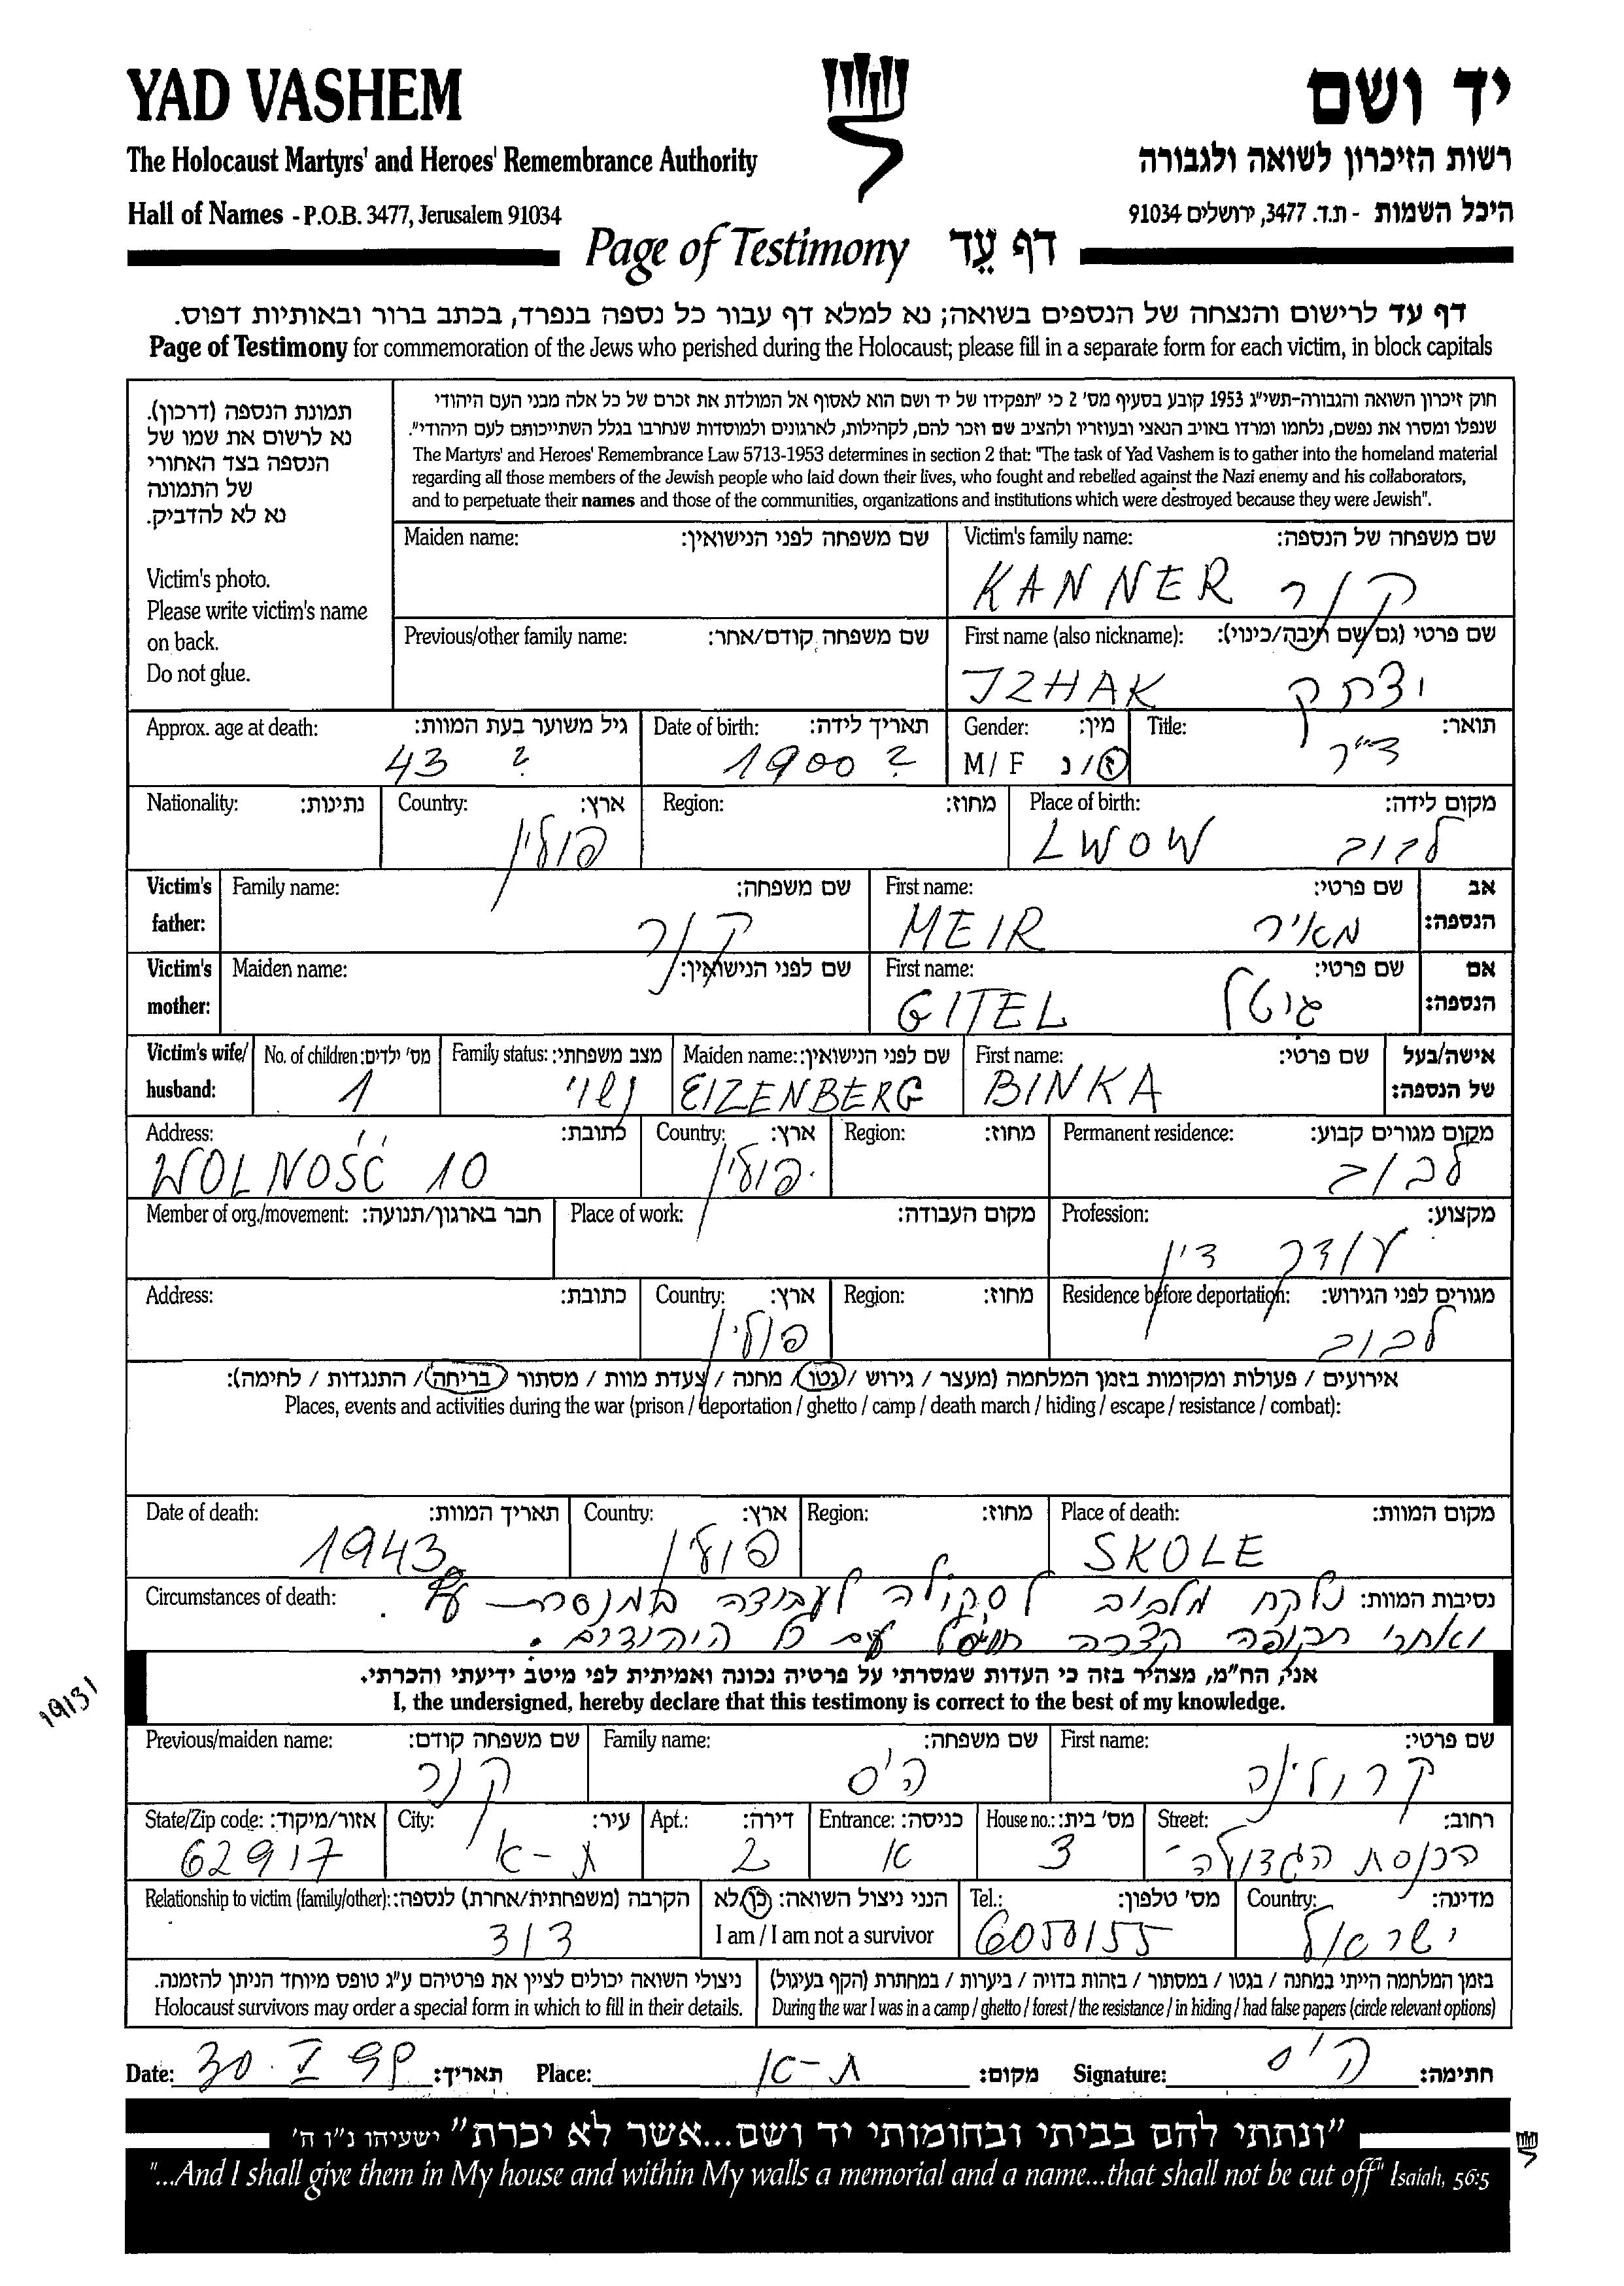 YAD VASHEM
יד ושם
The Holocaust Martyrs' and Heroes' Remembrance Authority
רשות הזיכרון לשואה ולגבורה
Hall of Names - P.O.B. 3477, Jerusalem 91034
היכל השמות - ת.ד. 3477, ירושלים 91034
Page of Testimony דף עֵד
דף עד לרישום והנצחה של הנספים בשואה; נא למלא דף עבור כל נספה בנפרד, בכתב ברור ובאותיות דפוס.
Page of Testimony for commemoration of the Jews who perished during the Holocaust; please fill in a separate form for each victim, in block capitals
תמונת הנספה (דרכון).
נא לרשום את שמו של
הנספה בצד האחורי
של התמונה
נא לא להדביק.
Victim's photo.
Please write victim's name
on back.
Do not glue.
חוק זיכרון השואה והגבורה-תשי"ג 1953 קובע בסעיף מס' 2 כי "תפקידו של יד ושם הוא לאסוף אל המולדת את זכרם של כל אלה מבני העם היהודי
שנפלו ומסרו את נפשם, נלחמו ומרדו באויב הנאצי ובעוזריו ולהציב שם וזכר להם, לקהילות, לארגונים ולמוסדות שנחרבו בגלל השתייכותם לעם היהודי".
The Martyrs' and Heroes' Remembrance Law 5713-1953 determines in section 2 that: "The task of Yad Vashem is to gather into the homeland material
regarding all those members of the Jewish people who laid down their lives, who fought and rebelled against the Nazi enemy and his collaborators,
and to perpetuate their names and those of the communities, organizations and institutions which were destroyed because they were Jewish".
Maiden name: שם משפחה לפני הנישואין: Victim's family name: שם משפחה של הנספה:
KANNER קנר
Previous/other family name: שם משפחה קודם/אחר: First name (also nickname): שם פרטי (גם שם חיבה/כינוי):
IZHAK יצחק
Approx. age at death: גיל משוער בעת המוות: Date of birth: תאריך לידה: Gender: מין: Title: תואר:
43 ? 1900 ? M / F ז / נ ד"ר
Nationality: נתינות: Country: ארץ: Region: מחוז: Place of birth: מקום לידה:
פולין LWOW לבוב
Victim's father: Family name: שם משפחה: First name: שם פרטי: אב הנספה:
קנר MEIR מאיר
Victim's mother: Maiden name: שם לפני הנישואין: First name: שם פרטי: אם הנספה:
GITEL גיטל
Victim's wife/ husband: No. of children: מס' ילדים: Family status: מצב משפחתי: Maiden name: שם לפני הנישואין: First name: שם פרטי: אישה/בעל של הנספה:
1 נשוי EIZENBERG BINKA
Address: כתובת: Country: ארץ: Region: מחוז: Permanent residence: מקום מגורים קבוע:
WOLNOŚĆ 10 פולין לבוב
Member of org./movement: חבר בארגון/תנועה: Place of work: מקום העבודה: Profession: מקצוע:
עורך דין
Address: כתובת: Country: ארץ: Region: מחוז: Residence before deportation: מגורים לפני הגירוש:
פולין לבוב
אירועים / פעולות ומקומות בזמן המלחמה (מעצר / גירוש / גטו / מחנה / צעדת מוות / מסתור / בריחה / התנגדות / לחימה):
Places, events and activities during the war (prison / deportation / ghetto / camp / death march / hiding / escape / resistance / combat):
Date of death: תאריך המוות: Country: ארץ: Region: מחוז: Place of death: מקום המוות:
1943 פולין SKOLE
Circumstances of death: נסיבות המוות: נלקח מלבוב לסקולה לעבודה במנסרת עץ.
ואחרי תקופה קצרה חוסל עם כל היהודים.
אני, הח"מ, מצהיר בזה כי העדות שמסרתי על פרטיה נכונה ואמיתית לפי מיטב ידיעתי והכרתי.
I, the undersigned, hereby declare that this testimony is correct to the best of my knowledge.
19131
Previous/maiden name: שם משפחה קודם: Family name: שם משפחה: First name: שם פרטי:
קנר היס קרולינה
State/Zip code: אזור/מיקוד: City: עיר: Apt.: דירה: Entrance: כניסה: House no.: מס' בית: Street: רחוב:
62917 ת-א 2 א 3 הכנסת הגדולה
Relationship to victim (family/other): הקרבה (משפחתית/אחרת) לנספה: הנני ניצול השואה: כן/לא Tel.: מס' טלפון: Country: מדינה:
דוד I am / I am not a survivor 6050155 ישראל
ניצולי השואה יכולים לציין את פרטיהם ע"ג טופס מיוחד הניתן להזמנה.
Holocaust survivors may order a special form in which to fill in their details.
בזמן המלחמה הייתי במחנה / בגטו / במסתור / בזהות בדויה / ביערות / במחתרת (הקף בעיגול)
During the war I was in a camp / ghetto / forest / the resistance / in hiding / had false papers (circle relevant options)
Date: 30. V 99 תאריך: Place: ת-א מקום: Signature: היס חתימה:
"ונתתי להם בביתי ובחומותי יד ושם...אשר לא יכרת" ישעיהו נ"ו ה'
"...And I shall give them in My house and within My walls a memorial and a name...that shall not be cut off" Isaiah, 56:5